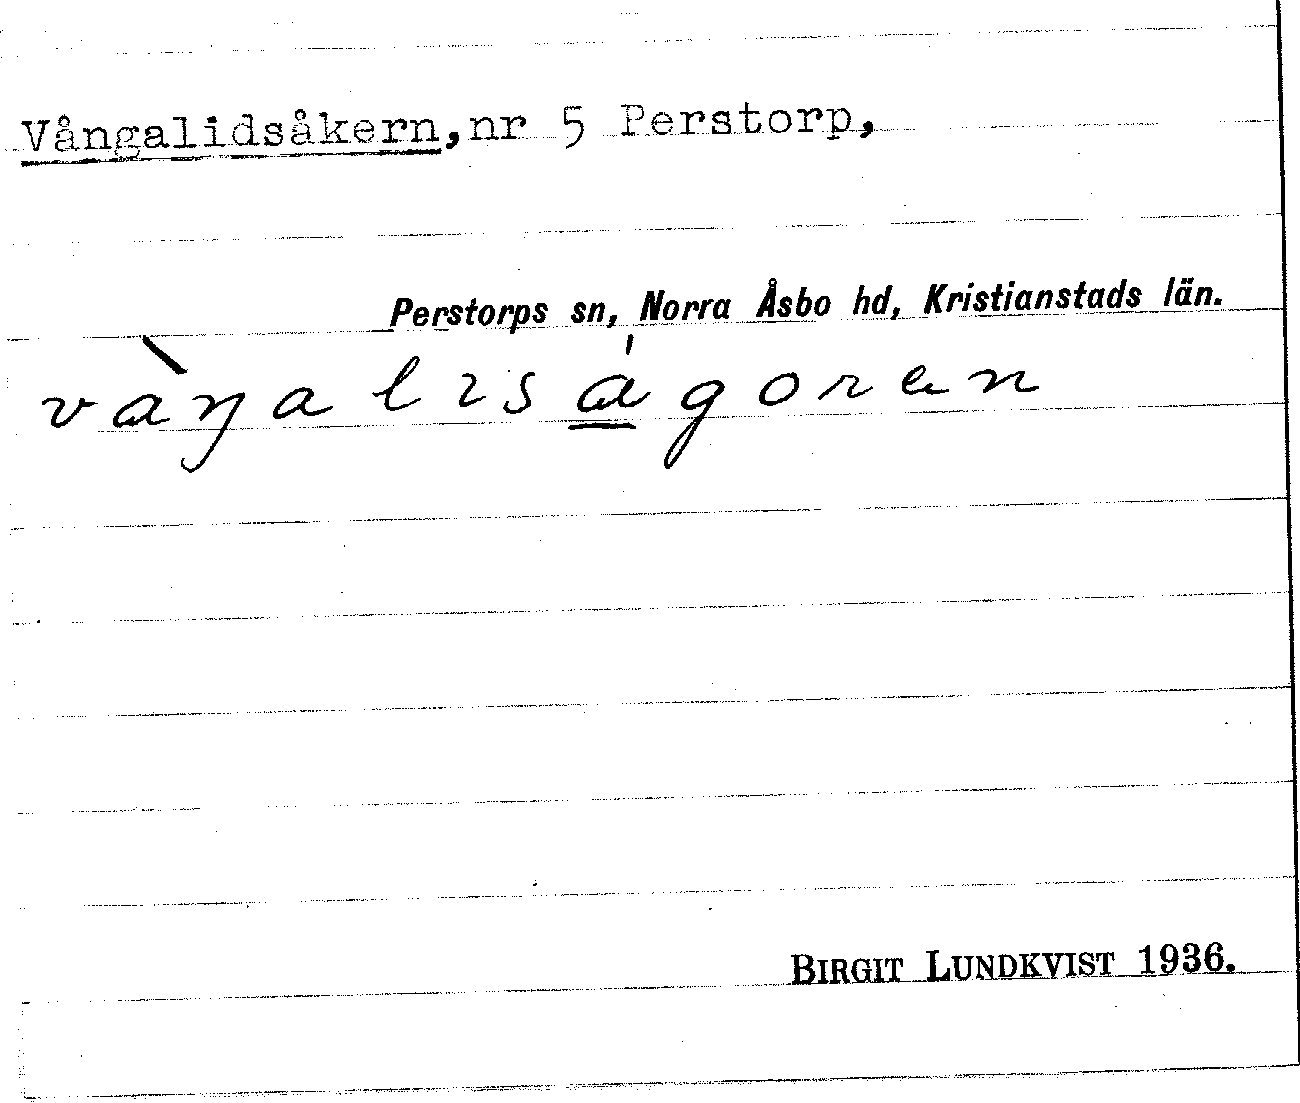 Vångalidsåkern, nr 5 Perstorp,
Perstorps sn, Norra Åsbo hd, Kristianstads län.
vàŋalıságoren
BIRGIT LUNDKVIST 1936.